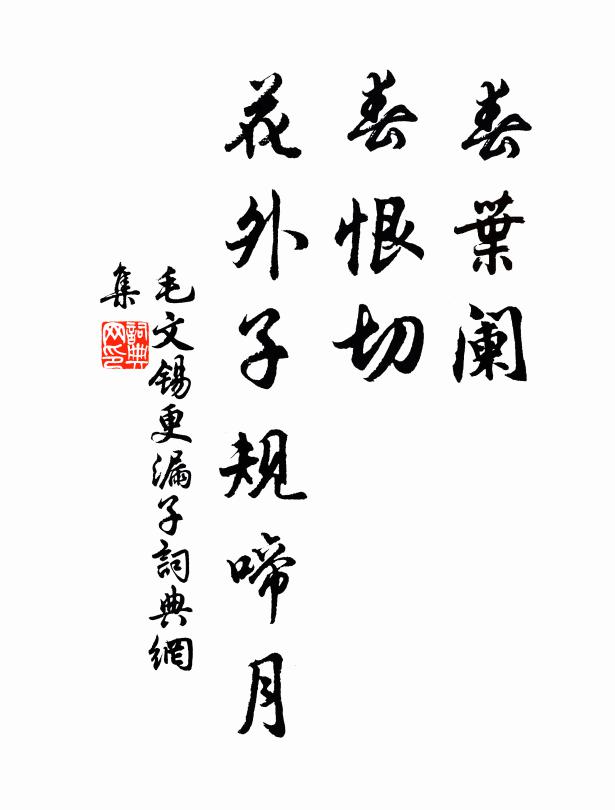 春葉闌
春恨切
花外子規啼月
毛文錫更漏子詞典網
集
詞典网印